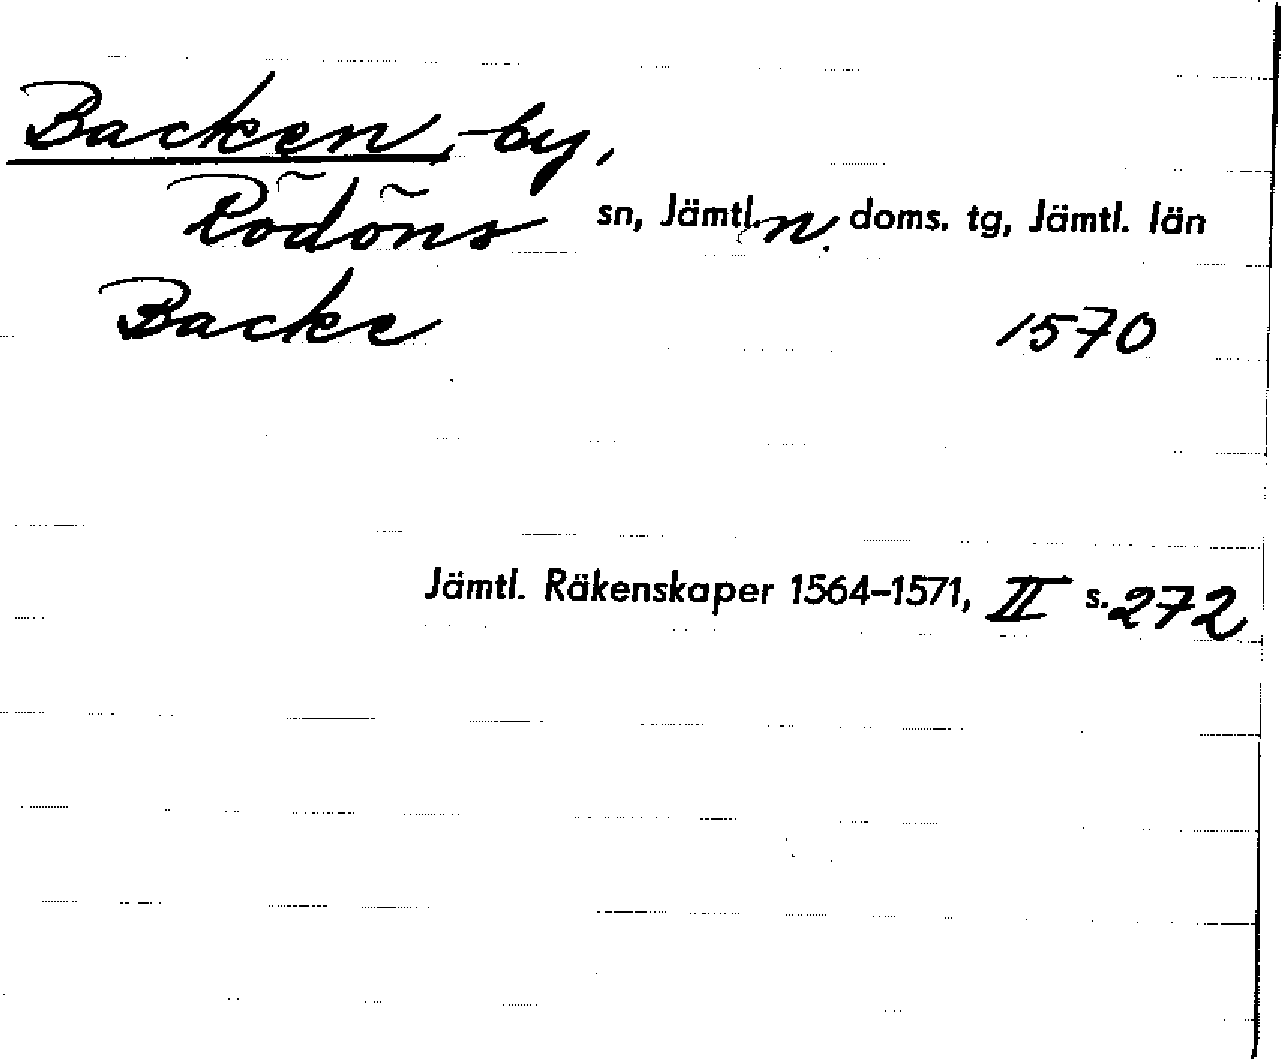 Backen, -by,
Rödöns sn, Jämtl. n. doms. tg, Jämtl. län
Backe 1570
Jämtl. Räkenskaper 1564–1571, II s. 272